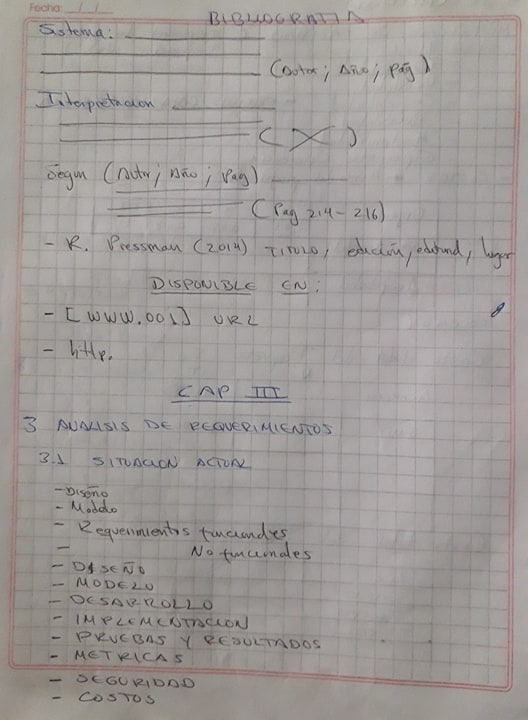 Fecha: / /
BIBLIOGRAFIA
Sistema:
(Autor; Año; Pág)
Interpretacion
(X)
Segun (Autor; Año; Pag)
(Pag 214-216)
- R. Pressman (2014) TITULO, edición, editorial, lugar
DISPONIBLE EN:
- [WWW.001] URL
- http.
CAP III
3 ANALISIS DE REQUERIMIENTOS
3.1 SITUACION ACTUAL
- Diseño
- Modelo
- Requerimientos funcionales
- No funcionales
- DISEÑO
- MODELO
- DESARROLLO
- IMPLEMENTACION
- PRUEBAS Y RESULTADOS
- METRICAS
- SEGURIDAD
- COSTOS